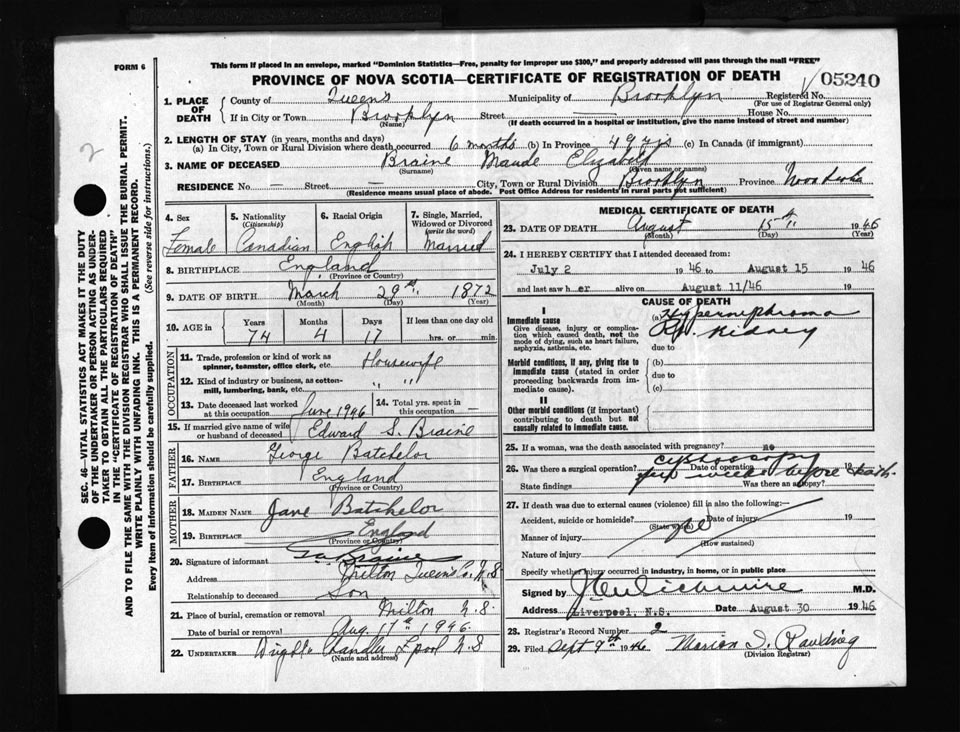 This form if placed in an envelope, marked "Dominion Statistics—Free, penalty for improper use $300," and properly addressed will pass through the mail "FREE"
FORM 6
PROVINCE OF NOVA SCOTIA—CERTIFICATE OF REGISTRATION OF DEATH
05240
Registered No.
(For use of Registrar General only)
1. PLACE OF DEATH
County of Queens Municipality of Brooklyn
If in City or Town Brooklyn Street House No.
(Name) (If death occurred in a hospital or institution, give the name instead of street and number)
2. LENGTH OF STAY (in years, months and days)
(a) In City, Town or Rural Division where death occurred 6 months (b) In Province 49 yrs (c) In Canada (if immigrant)
3. NAME OF DECEASED Braine Maude Elizabeth
(Surname) (Given name or names)
RESIDENCE No — Street — City, Town or Rural Division Brooklyn Province Nova Scotia
(Residence means usual place of abode. Post Office Address for residents in rural parts not sufficient)
2
SEC. 46—VITAL STATISTICS ACT MAKES IT THE DUTY
OF THE UNDERTAKER OR PERSON ACTING AS UNDER-
TAKER TO OBTAIN ALL THE PARTICULARS REQUIRED
IN THE "CERTIFICATE OF REGISTRATION OF DEATH"
AND TO FILE THE SAME WITH THE DIVISION REGISTRAR WHO SHALL ISSUE THE BURIAL PERMIT.
WRITE PLAINLY WITH UNFADING INK. THIS IS A PERMANENT RECORD.
Every item of Information should be carefully supplied. (See reverse side for instructions.)
4. Sex
Female
5. Nationality
(Citizenship)
Canadian
6. Racial Origin
English
7. Single, Married,
Widowed or Divorced
(write the word)
Married
8. BIRTHPLACE England
(Province or Country)
9. DATE OF BIRTH March 29th 1872
(Month) (Day) (Year)
10. AGE in Years Months Days If less than one day old
74 4 17 hrs. or min.
OCCUPATION
11. Trade, profession or kind of work as
spinner, teamster, office clerk, etc. Housewife
12. Kind of industry or business, as cotton-
mill, lumbering, bank, etc. " "
13. Date deceased last worked
at this occupation June 1946
14. Total yrs. spent in
this occupation —
15. If married give name of wife
or husband of deceased Edward S. Braine
FATHER
16. Name George Batchelor
17. Birthplace England
(Province or Country)
MOTHER
18. Maiden Name Jane Batchelor
19. Birthplace England
(Province or Country)
20. Signature of informant Braine
Address Milton Queens Co. N.S
Relationship to deceased Son
21. Place of burial, cremation or removal Milton N.S.
Date of burial or removal Aug. 17th 1946
22. UNDERTAKER Chandler L'pool N.S
(Name and address)
MEDICAL CERTIFICATE OF DEATH
23. DATE OF DEATH August 15th 1946
(Month) (Day) (Year)
24. I HEREBY CERTIFY that I attended deceased from:
July 2 1946 to August 15 1946
and last saw her alive on August 11/46 19
CAUSE OF DEATH
I
Immediate cause
Give disease, injury or complica-
tion which caused death, not the
mode of dying, such as heart failure,
asphyxia, asthenia, etc.
(a) Hypernephroma
Rt. Kidney
due to
Morbid conditions, if any, giving rise to
immediate cause (stated in order
proceeding backwards from im-
mediate cause).
(b)
due to
(c)
II
Other morbid conditions (if important)
contributing to death but not
causally related to immediate cause.
25. If a woman, was the death associated with pregnancy? no
26. Was there a surgical operation? cystoscopy Date of operation
few weeks before death.
State findings Was there an autopsy?
27. If death was due to external causes (violence) fill in also the following:—
Accident, suicide or homicide? Date of injury 19
(State which)
Manner of injury
(How sustained)
Nature of injury
Specify whether injury occurred in industry, in home, or in public place
Signed by M.D.
Address Liverpool, N.S. Date August 30 1946
28. Registrar's Record Number 2
29. Filed Sept 9th 1946 Marion I. Rawding
(Division Registrar)